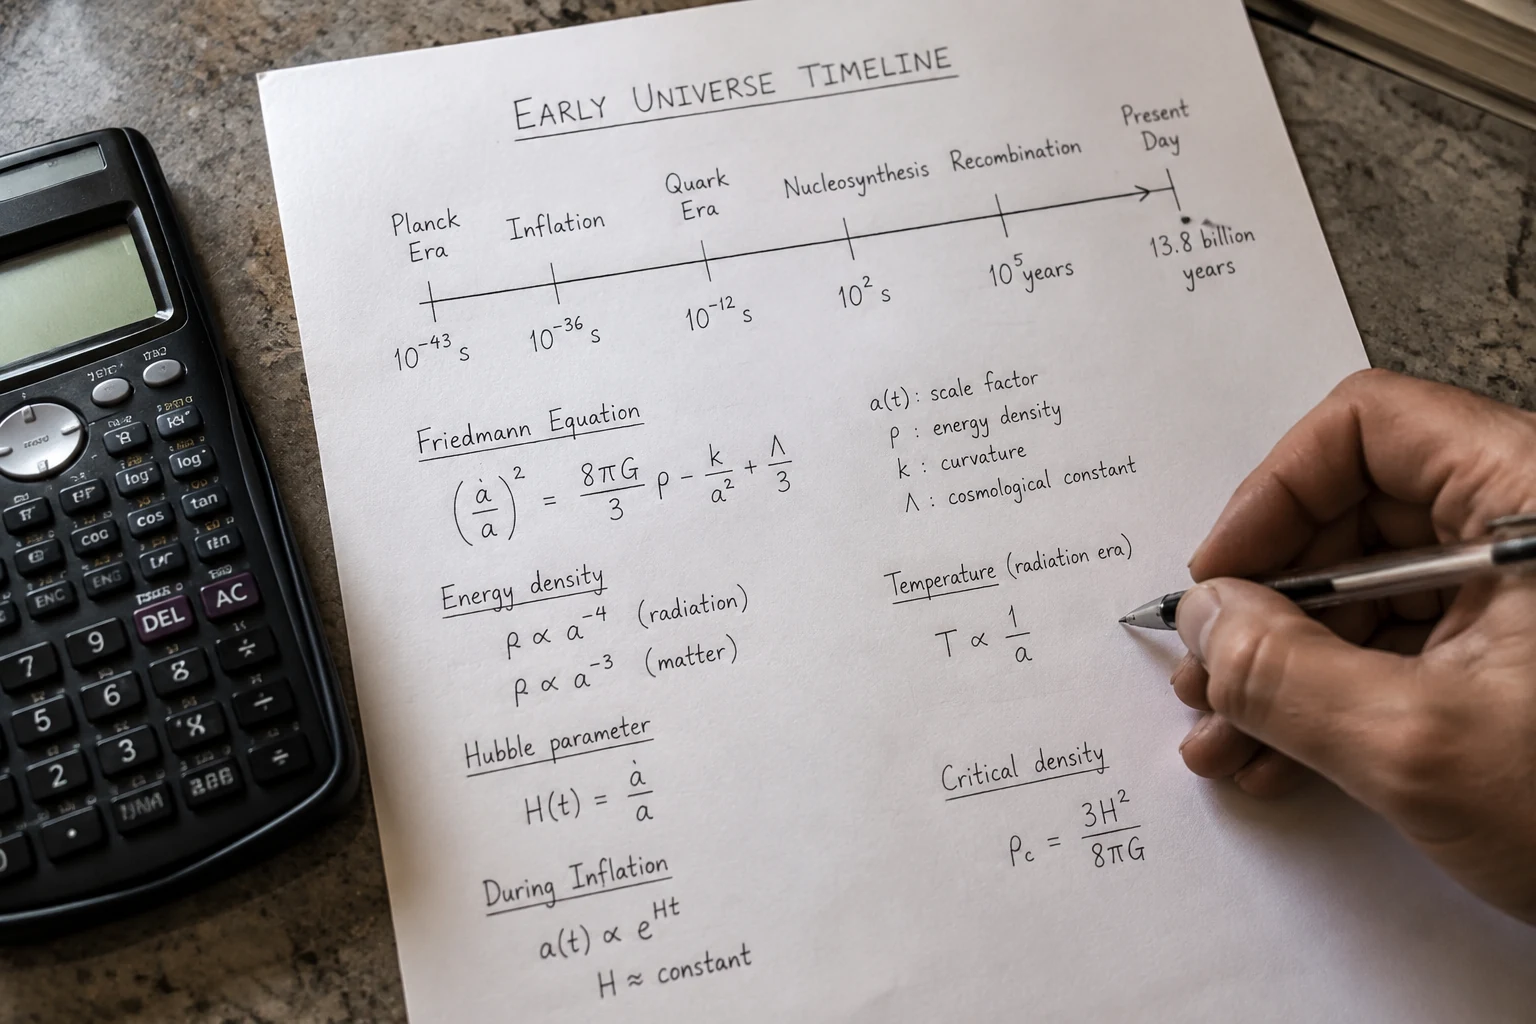 EARLY UNIVERSE TIMELINE
Planck Era
Inflation
Quark Era
Nucleosynthesis
Recombination
Present Day
10⁻⁴³ s
10⁻³⁶ s
10⁻¹² s
10² s
10⁵ years
13.8 billion years
Friedmann Equation
(ȧ/a)² = 8πG/3 ρ − k/a² + Λ/3
a(t) : scale factor
ρ : energy density
k : curvature
Λ : cosmological constant
Energy density
ρ ∝ a⁻⁴ (radiation)
ρ ∝ a⁻³ (matter)
Temperature (radiation era)
T ∝ 1/a
Hubble parameter
H(t) = ȧ/a
Critical density
ρc = 3H²/8πG
During Inflation
a(t) ∝ e^Ht
H ≈ constant
log
log
tan
cos
COG
ENG
ENC
DEL
AC
7
9
8
÷
5
6
÷
2
3
÷